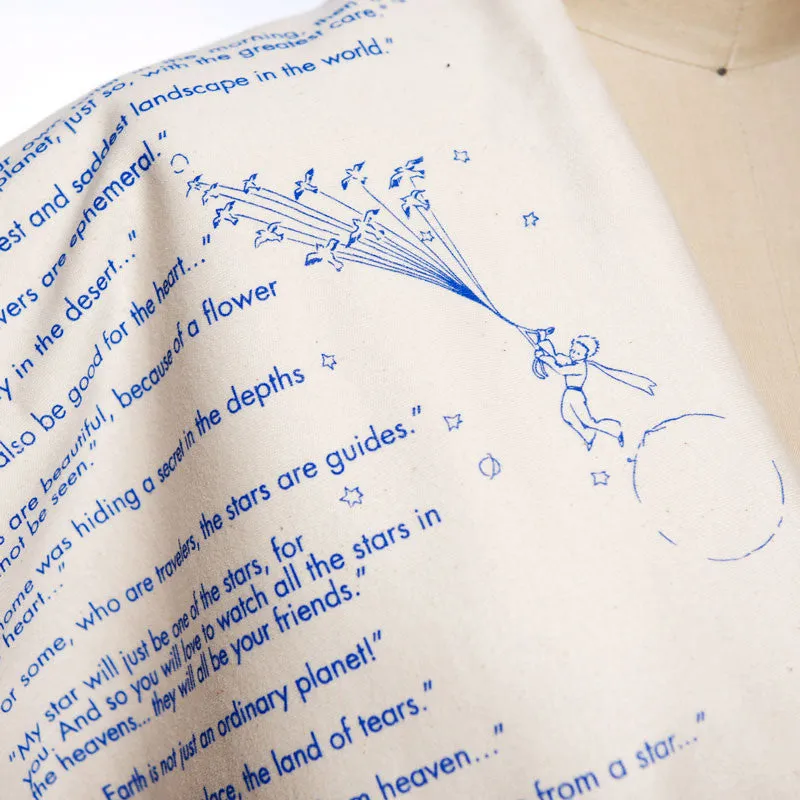 in the morning, then
r own planet, just so, with the greatest care."
est and saddest landscape in the world."
wers are ephemeral."
y in the desert..."
also be good for the heart..."
are beautiful, because of a flower
not be seen."
home was hiding a secret in the depths
heart..."
or some, who are travelers, the stars are guides."
"My star will just be one of the stars, for
you. And so you will love to watch all the stars in
the heavens... they will all be your friends."
Earth is not just an ordinary planet!"
lace, the land of tears."
m heaven..."
from a star..."